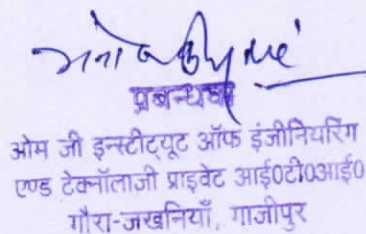 प्रबन्धक
ओम जी इन्स्टीट्यूट ऑफ इंजीनियरिंग
एण्ड टेक्नॉलाजी प्राइवेट आई0टी0आई0
गौरा-जखनियाँ, गाजीपुर